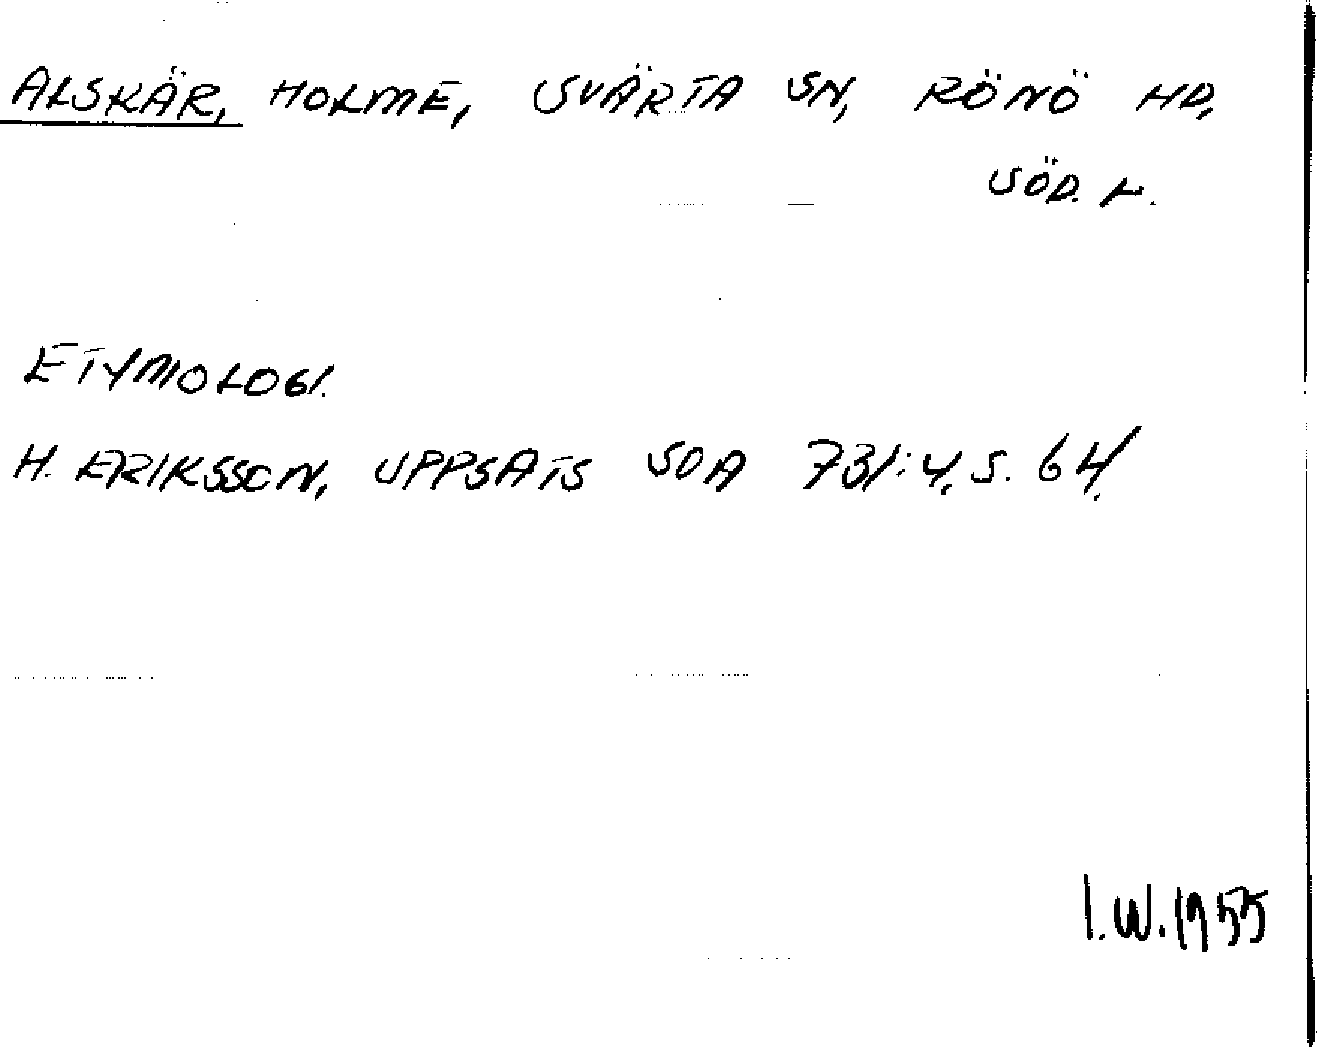 ALSKÄR, HOLME, SVÄRTA SN, RÖNÖ HD,
SÖD. L.
ETYMOLOGI.
H. ERIKSSON, UPPSATS SOA 731:4, S. 64.
I.W. 1955